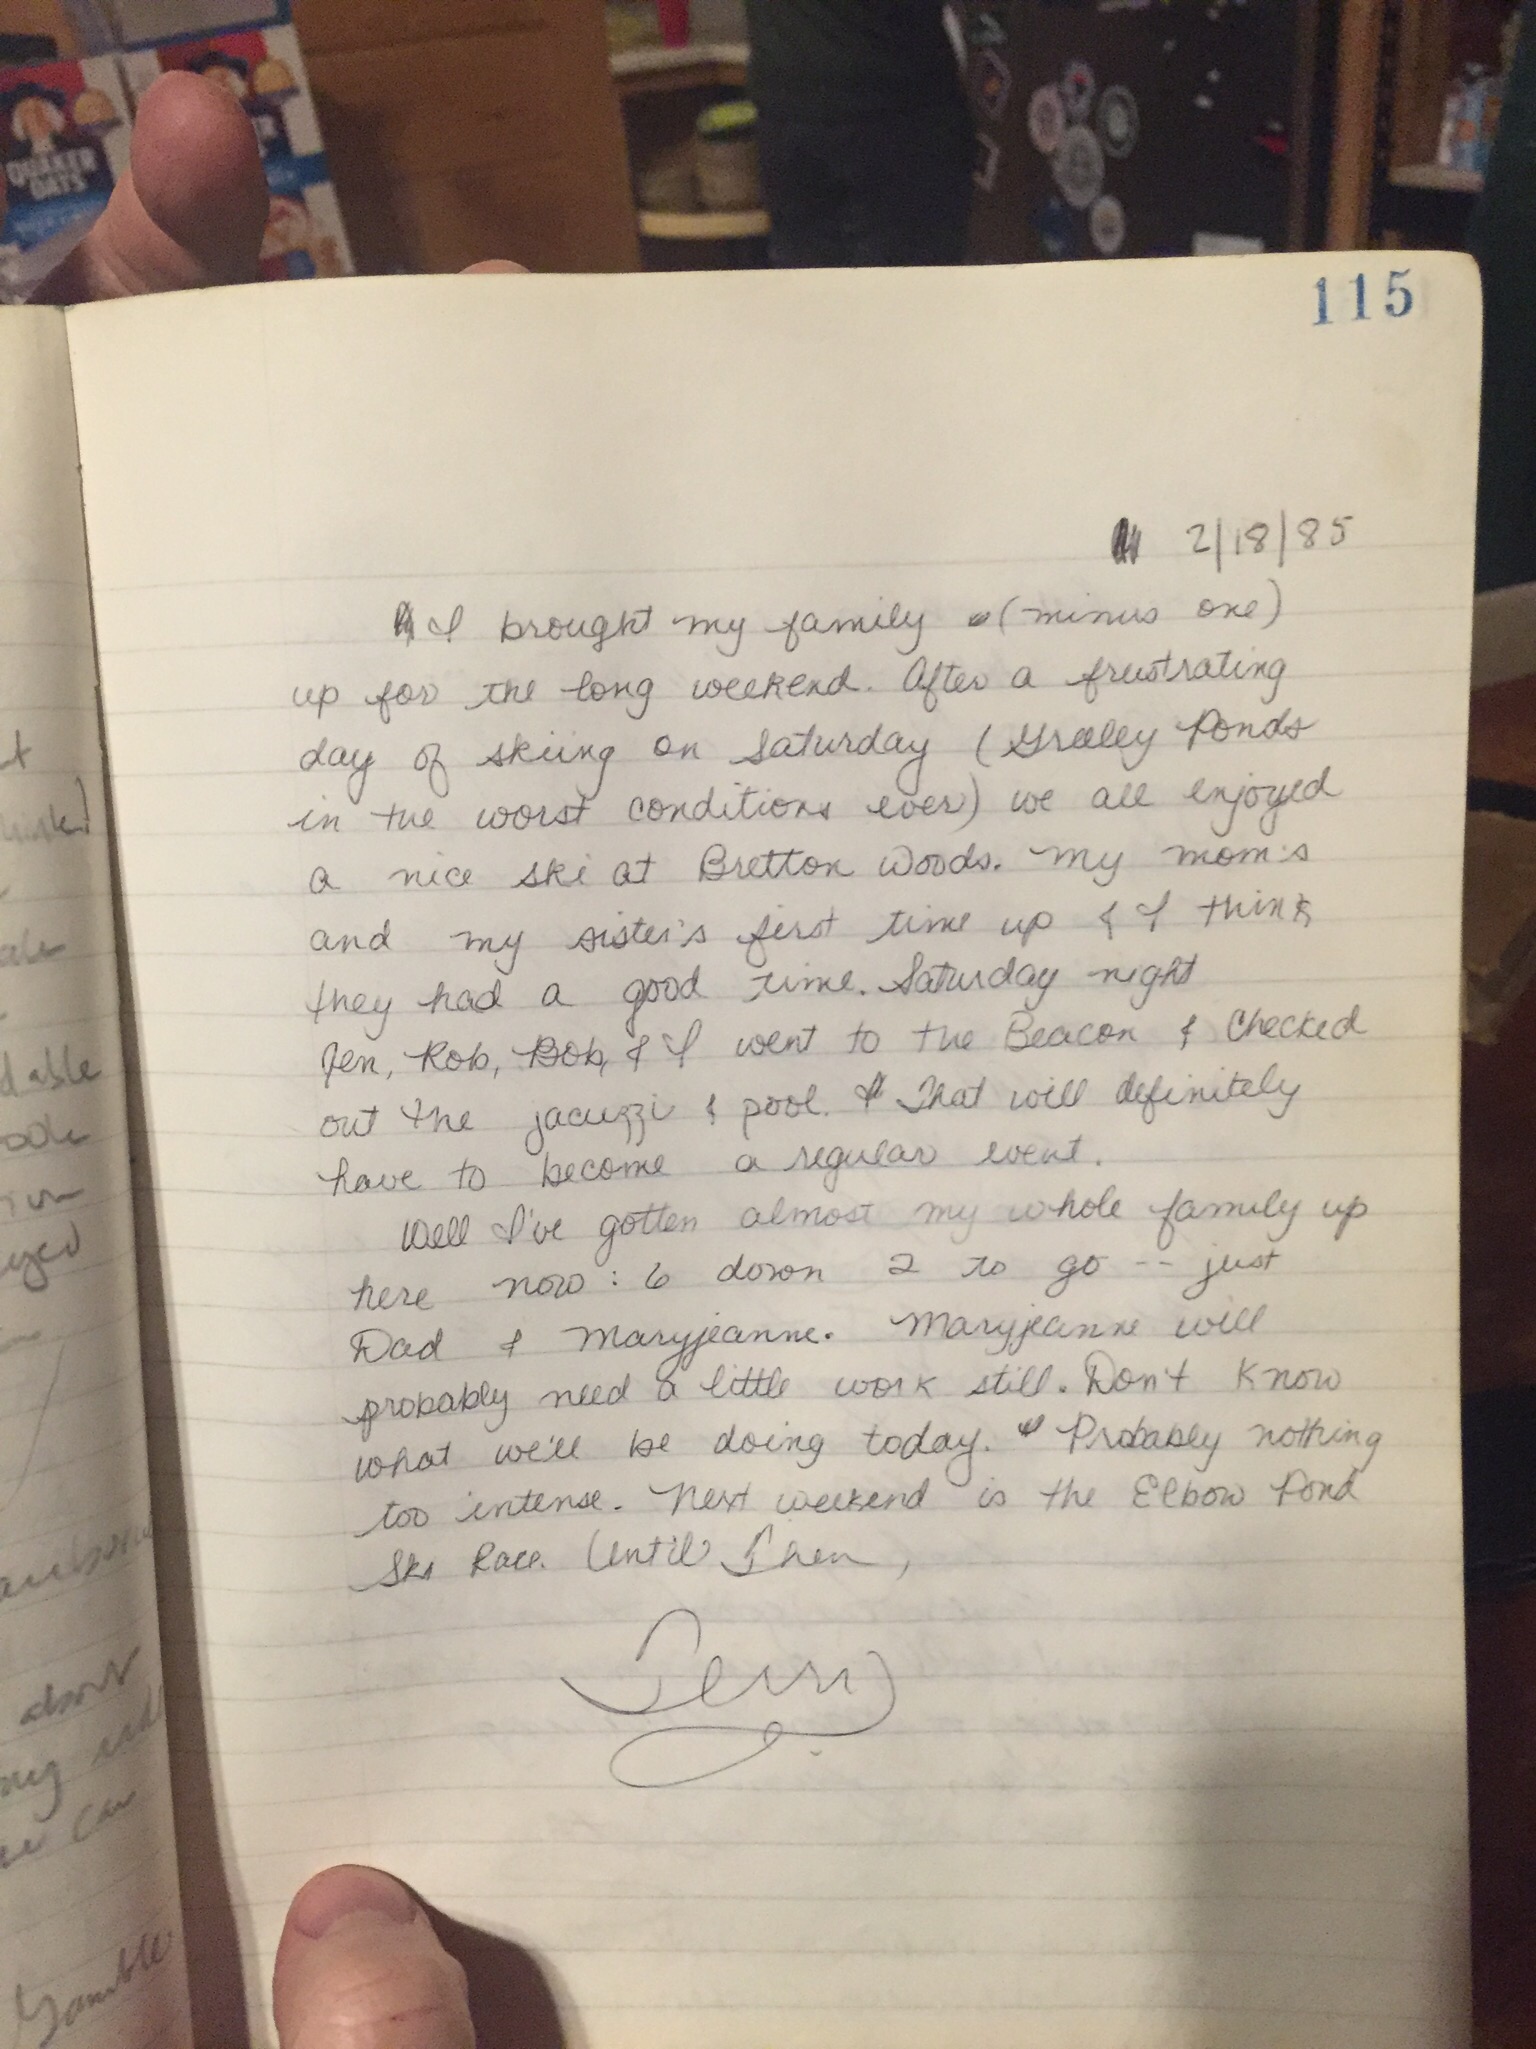 QUAKER
OATS
115
2/18/85
I brought my family (minus one)
up for the long weekend. After a frustrating
day of skiing on Saturday (Greeley Ponds
in the worst conditions ever) we all enjoyed
a nice ski at Bretton Woods. My mom's
and my sister's first time up & I think
they had a good time. Saturday night
Jen, Rob, Bob, & I went to the Beacon & checked
out the jacuzzi & pool. That will definitely
have to become a regular event.
Well I've gotten almost my whole family up
here now: 6 down 2 to go -- just
Dad & Maryjeanne. Maryjeanne will
probably need a little work still. Don't know
what we'll be doing today. Probably nothing
too intense. Next weekend is the Elbow Pond
Ski Race. Until Then,
Terri
about
can
Gamble